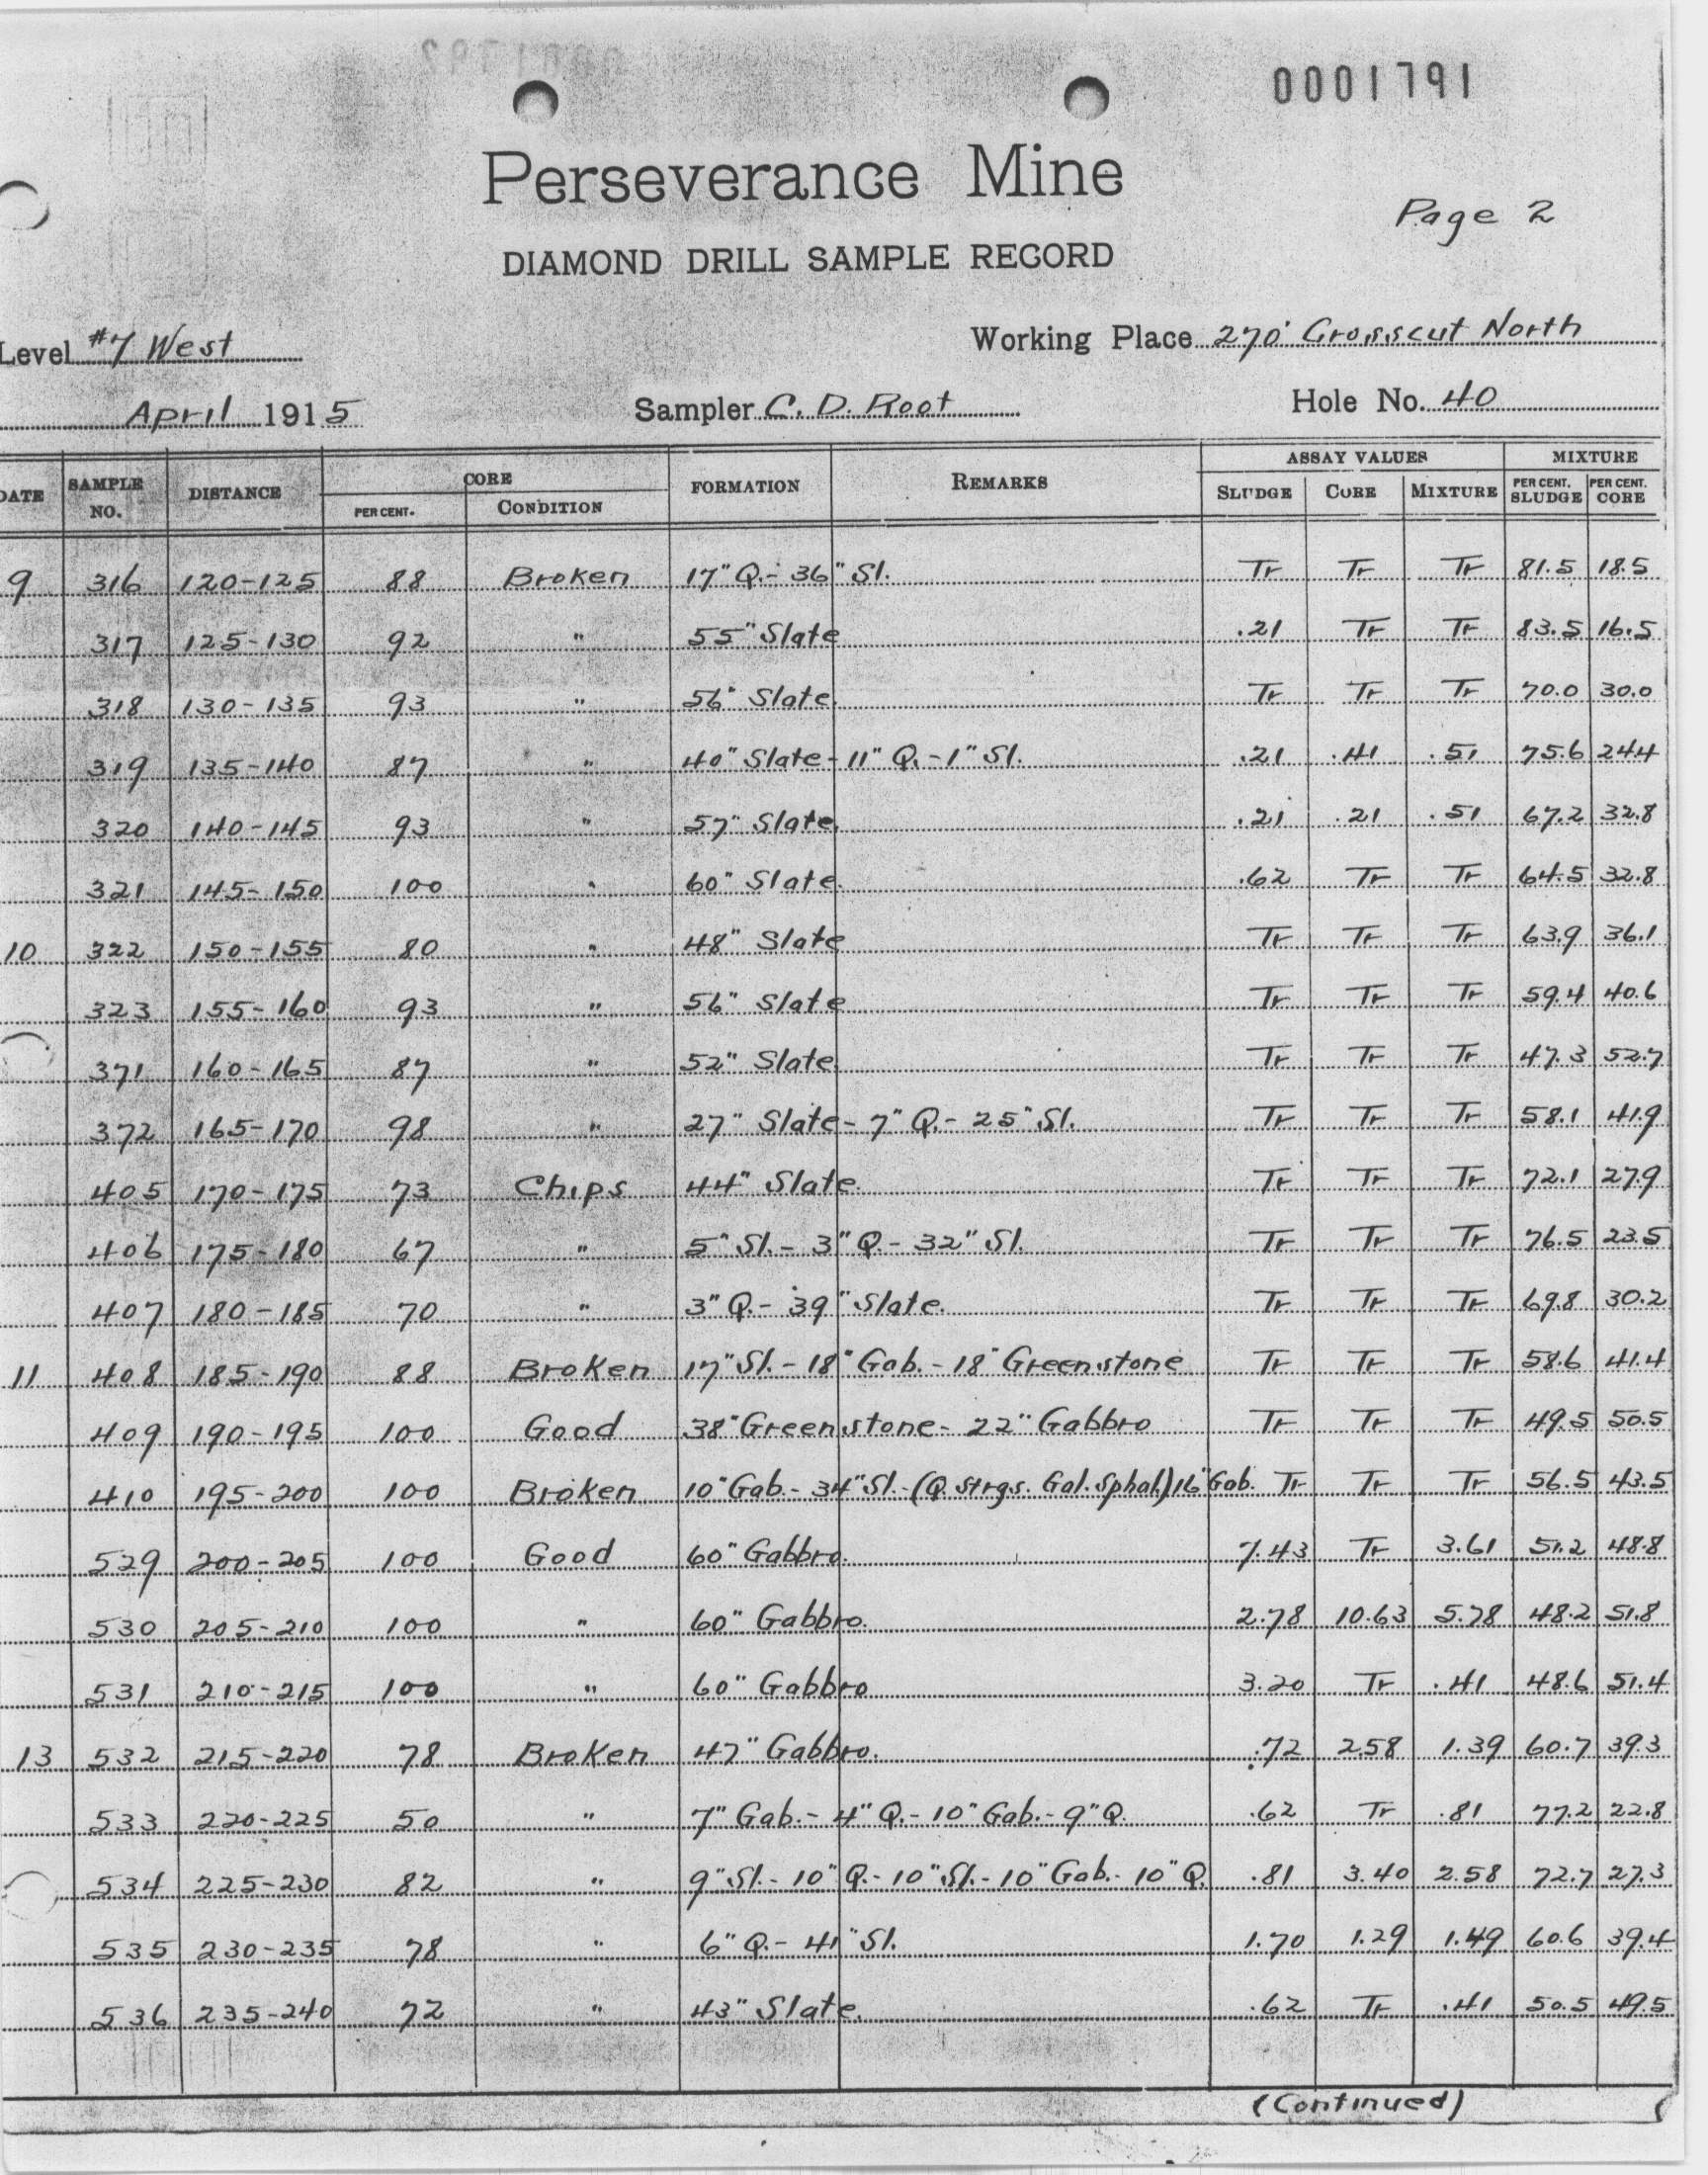 0001791
Perseverance Mine
Page 2
DIAMOND DRILL SAMPLE RECORD
Level #7 West Working Place 270' Crosscut North
April 1915 Sampler C. D. Root Hole No. 40
DATE SAMPLE NO. DISTANCE CORE FORMATION REMARKS ASSAY VALUES MIXTURE
PER CENT. CONDITION SLUDGE CORE MIXTURE PER CENT. SLUDGE PER CENT. CORE
9 316 120-125 88 Broken 17" Q.- 36" Sl. Tr Tr Tr 81.5 18.5
317 125-130 92 " 55" Slate .21 Tr Tr 83.5 16.5
318 130-135 93 " 56" Slate Tr Tr Tr 70.0 30.0
319 135-140 87 " 40" Slate - 11" Q. - 1" Sl. .21 .41 .51 75.6 24.4
320 140-145 93 " 57" Slate. .21 .21 .51 67.2 32.8
321 145-150 100 " 60" Slate. .62 Tr Tr 64.5 32.8
10 322 150-155 80 " 48" Slate Tr Tr Tr 63.9 36.1
323 155-160 93 " 56" Slate Tr Tr Tr 59.4 40.6
371 160-165 87 " 52" Slate Tr Tr Tr 47.3 52.7
372 165-170 98 " 27" Slate - 7" Q. - 25" Sl. Tr Tr Tr 58.1 41.9
405 170-175 73 Chips 44" Slate. Tr Tr Tr 72.1 27.9
406 175-180 67 " 5" Sl. - 3" Q - 32" Sl. Tr Tr Tr 76.5 23.5
407 180-185 70 " 3" Q. - 39" Slate. Tr Tr Tr 69.8 30.2
11 408 185-190 88 Broken 17" Sl. - 18" Gab. - 18" Greenstone Tr Tr Tr 58.6 41.4
409 190-195 100 Good 38" Greenstone - 22" Gabbro Tr Tr Tr 49.5 50.5
410 195-200 100 Broken 10" Gab. - 34" Sl. - (Q. Strgs. Gal. Sphal.) 16" Gab. Tr Tr Tr 56.5 43.5
529 200-205 100 Good 60" Gabbro. 7.43 Tr 3.61 51.2 48.8
530 205-210 100 " 60" Gabbro. 2.78 10.63 5.78 48.2 51.8
531 210-215 100 " 60" Gabbro 3.20 Tr .41 48.6 51.4
13 532 215-220 78 Broken 47" Gabbro. .72 2.58 1.39 60.7 39.3
533 220-225 50 " 7" Gab. - 4" Q. - 10" Gab. - 9" Q. .62 Tr .81 77.2 22.8
534 225-230 82 " 9" Sl. - 10" Q. - 10" Sl. - 10" Gab. - 10" Q. .81 3.40 2.58 72.7 27.3
535 230-235 78 " 6" Q. - 41" Sl. 1.70 1.29 1.49 60.6 39.4
536 235-240 72 " 43" Slate. .62 Tr .41 50.5 49.5
(Continued)